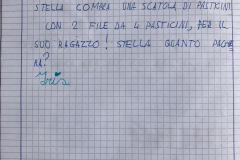 STELLA COMPRA UNA SCATOLA DI PASTICINI
CON 2 FILE DA 4 PASTICINI, PER IL
SUO RAGAZZO! STELLA QUANTO PAGHE
RA?
Iris